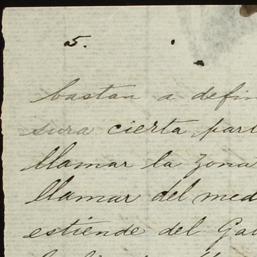 5.
bastan a defin
sura cierta part
llamar la zona
llamar del med
estiende del Ga